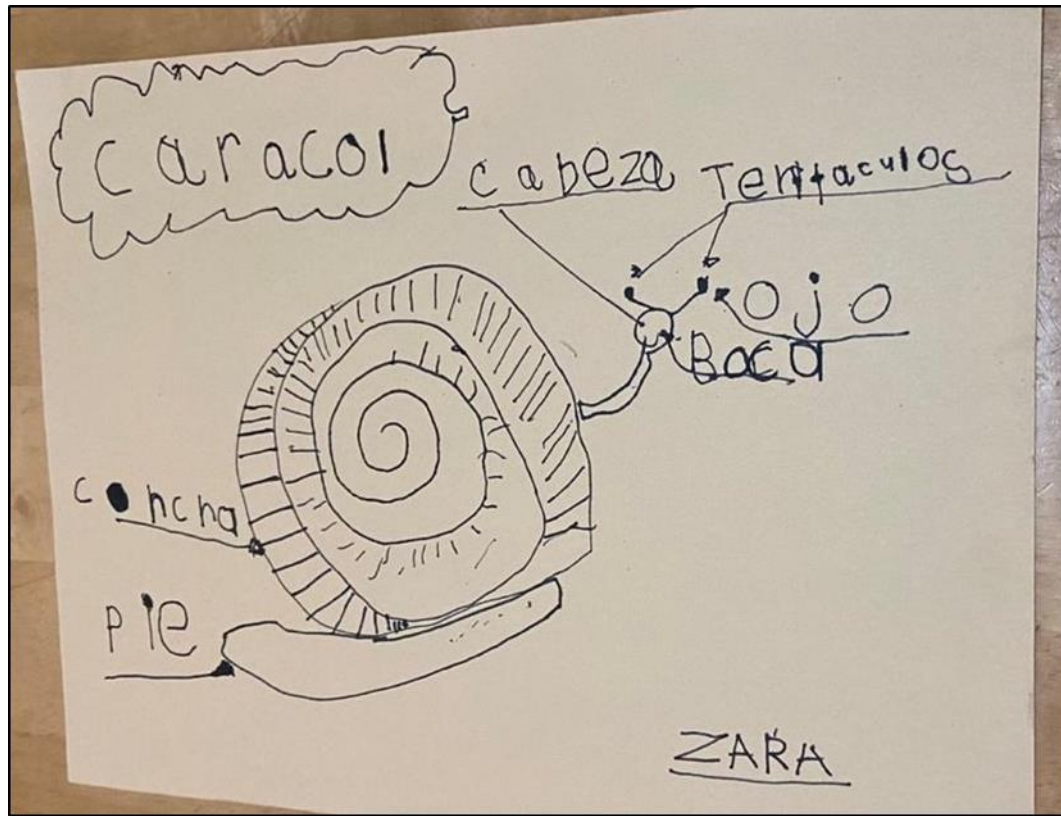 caracol
cabeza
Tentaculos
ojo
Baca
concha
pie
ZARA